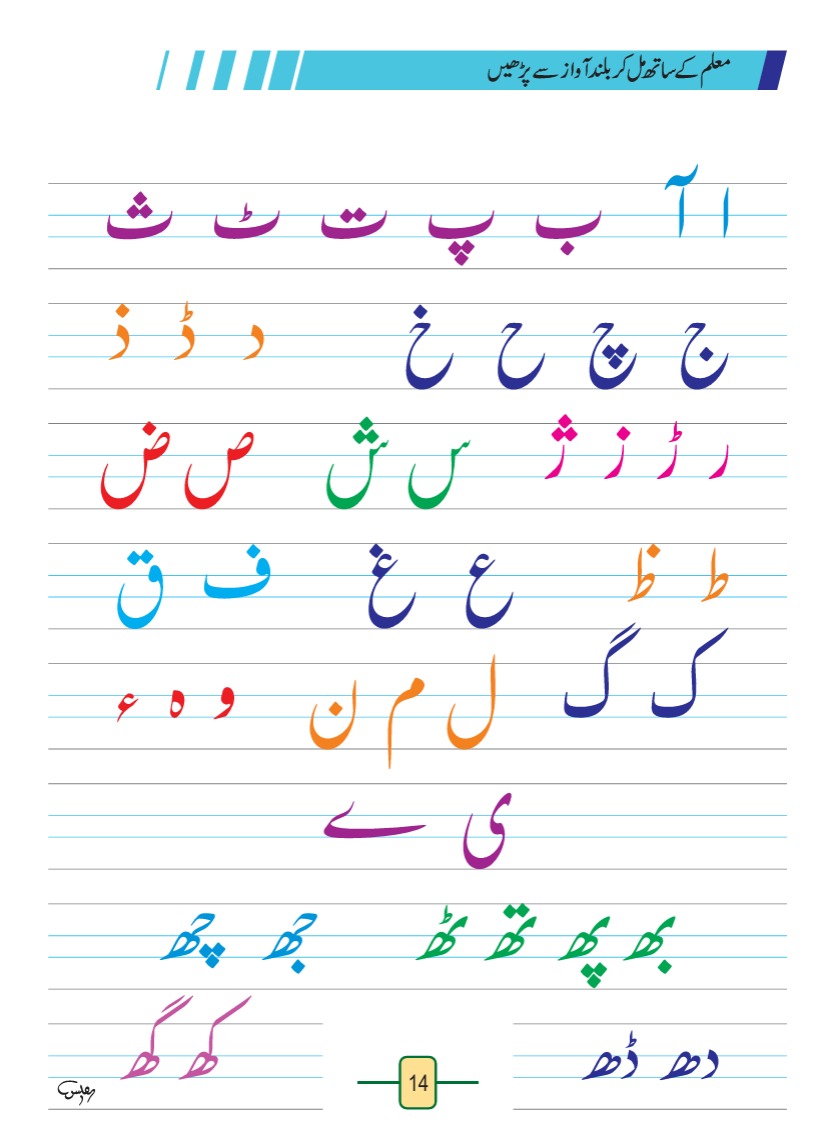 معلم کے ساتھ مل کر بلند آواز سے پڑھیں
ا آ ب پ ت ٹ ث
ج چ ح خ د ڈ ذ
ر ڑ ز ژ س ش ص ض
ط ظ ع غ ف ق
ک گ ل م ن و ہ ء
ی ے
بھ پھ تھ ٹھ جھ چھ
دھ ڈھ کھ گھ
14